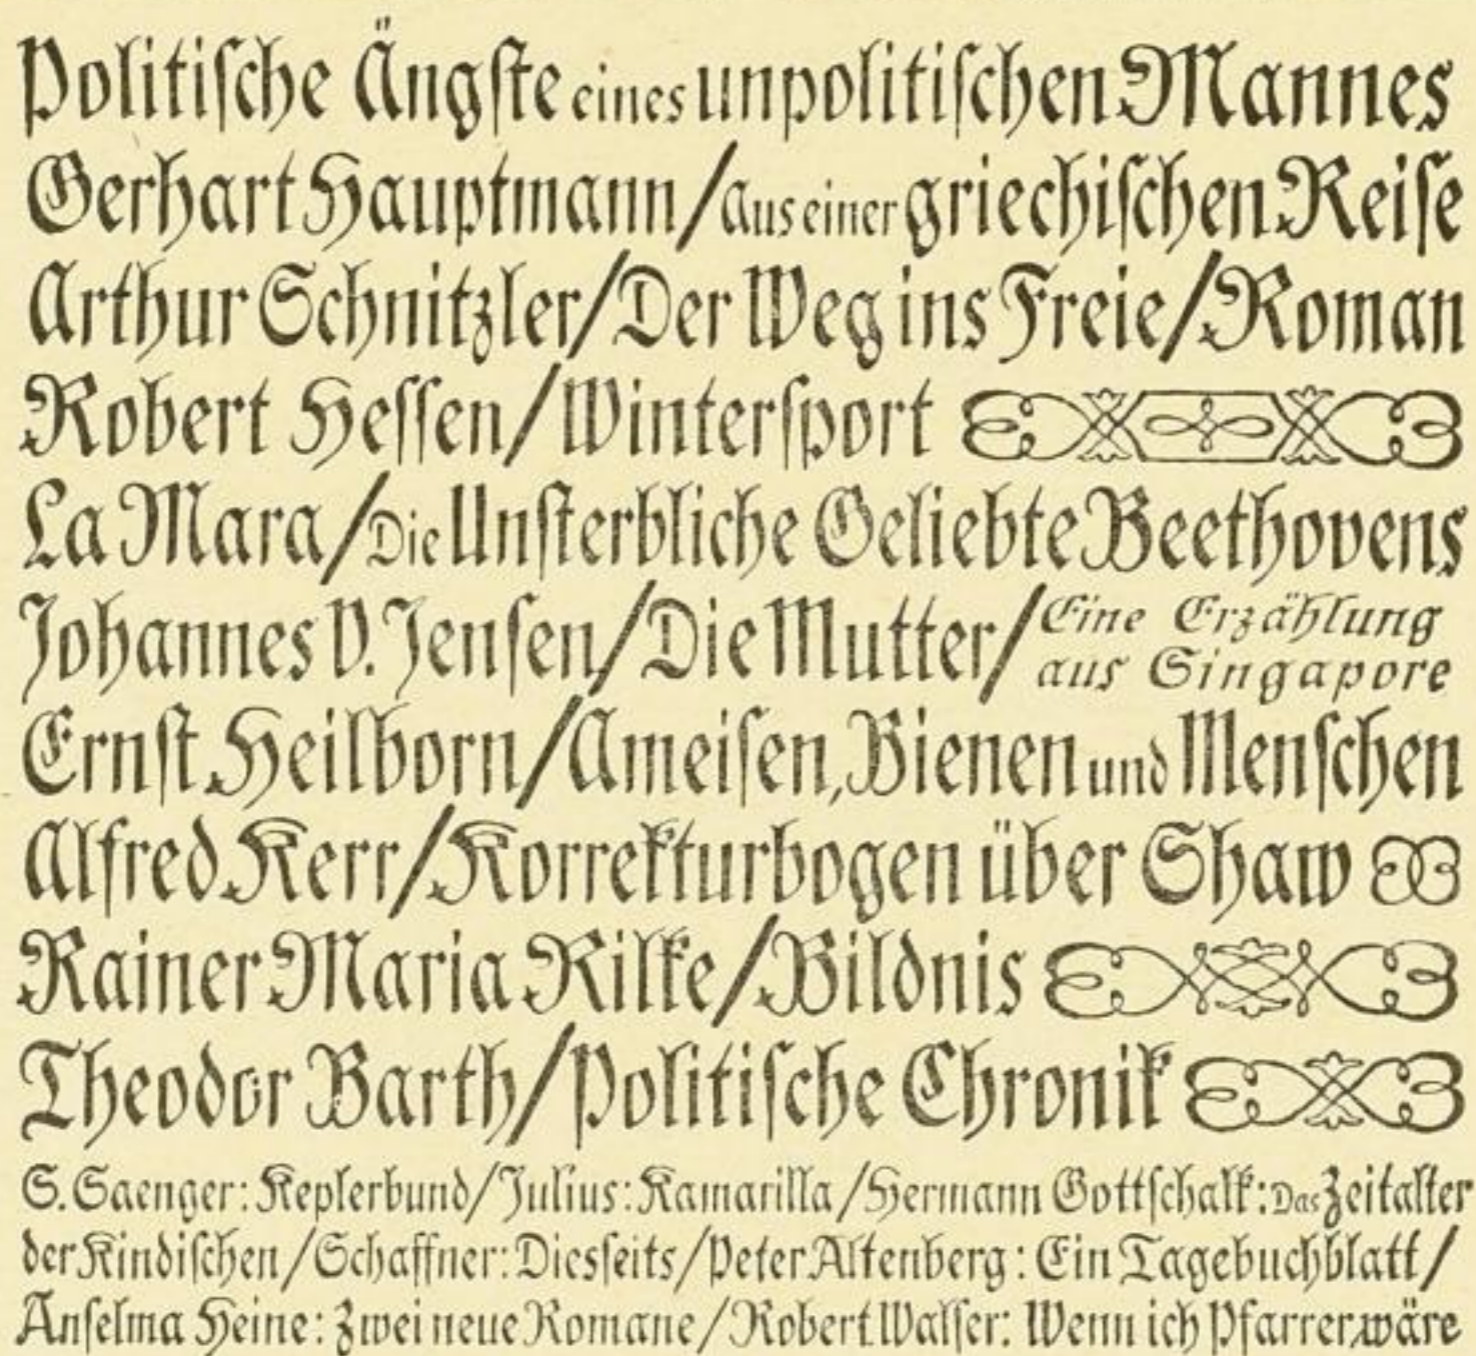 Politiſche Ängſte eines unpolitiſchen Mannes
Gerhart Hauptmann / Aus einer griechiſchen Reiſe
Arthur Schnitzler / Der Weg ins Freie / Roman
Robert Heſſen / Winterſport
La Mara / Die Unſterbliche Geliebte Beethovens
Johannes V. Jenſen / Die Mutter / Eine Erzählung
aus Singapore
Ernſt Heilborn / Ameiſen, Bienen und Menſchen
Alfred Kerr / Korrekturbogen über Shaw
Rainer Maria Rilke / Bildnis
Theodor Barth / Politiſche Chronik
S. Saenger: Keplerbund / Julius: Kamarilla / Hermann Gottſchalk: Das Zeitalter
der Kindiſchen / Schaffner: Diesſeits / Peter Altenberg: Ein Tagebuchblatt /
Anſelma Heine: Zwei neue Romane / Robert Walſer: Wenn ich Pfarrer wäre